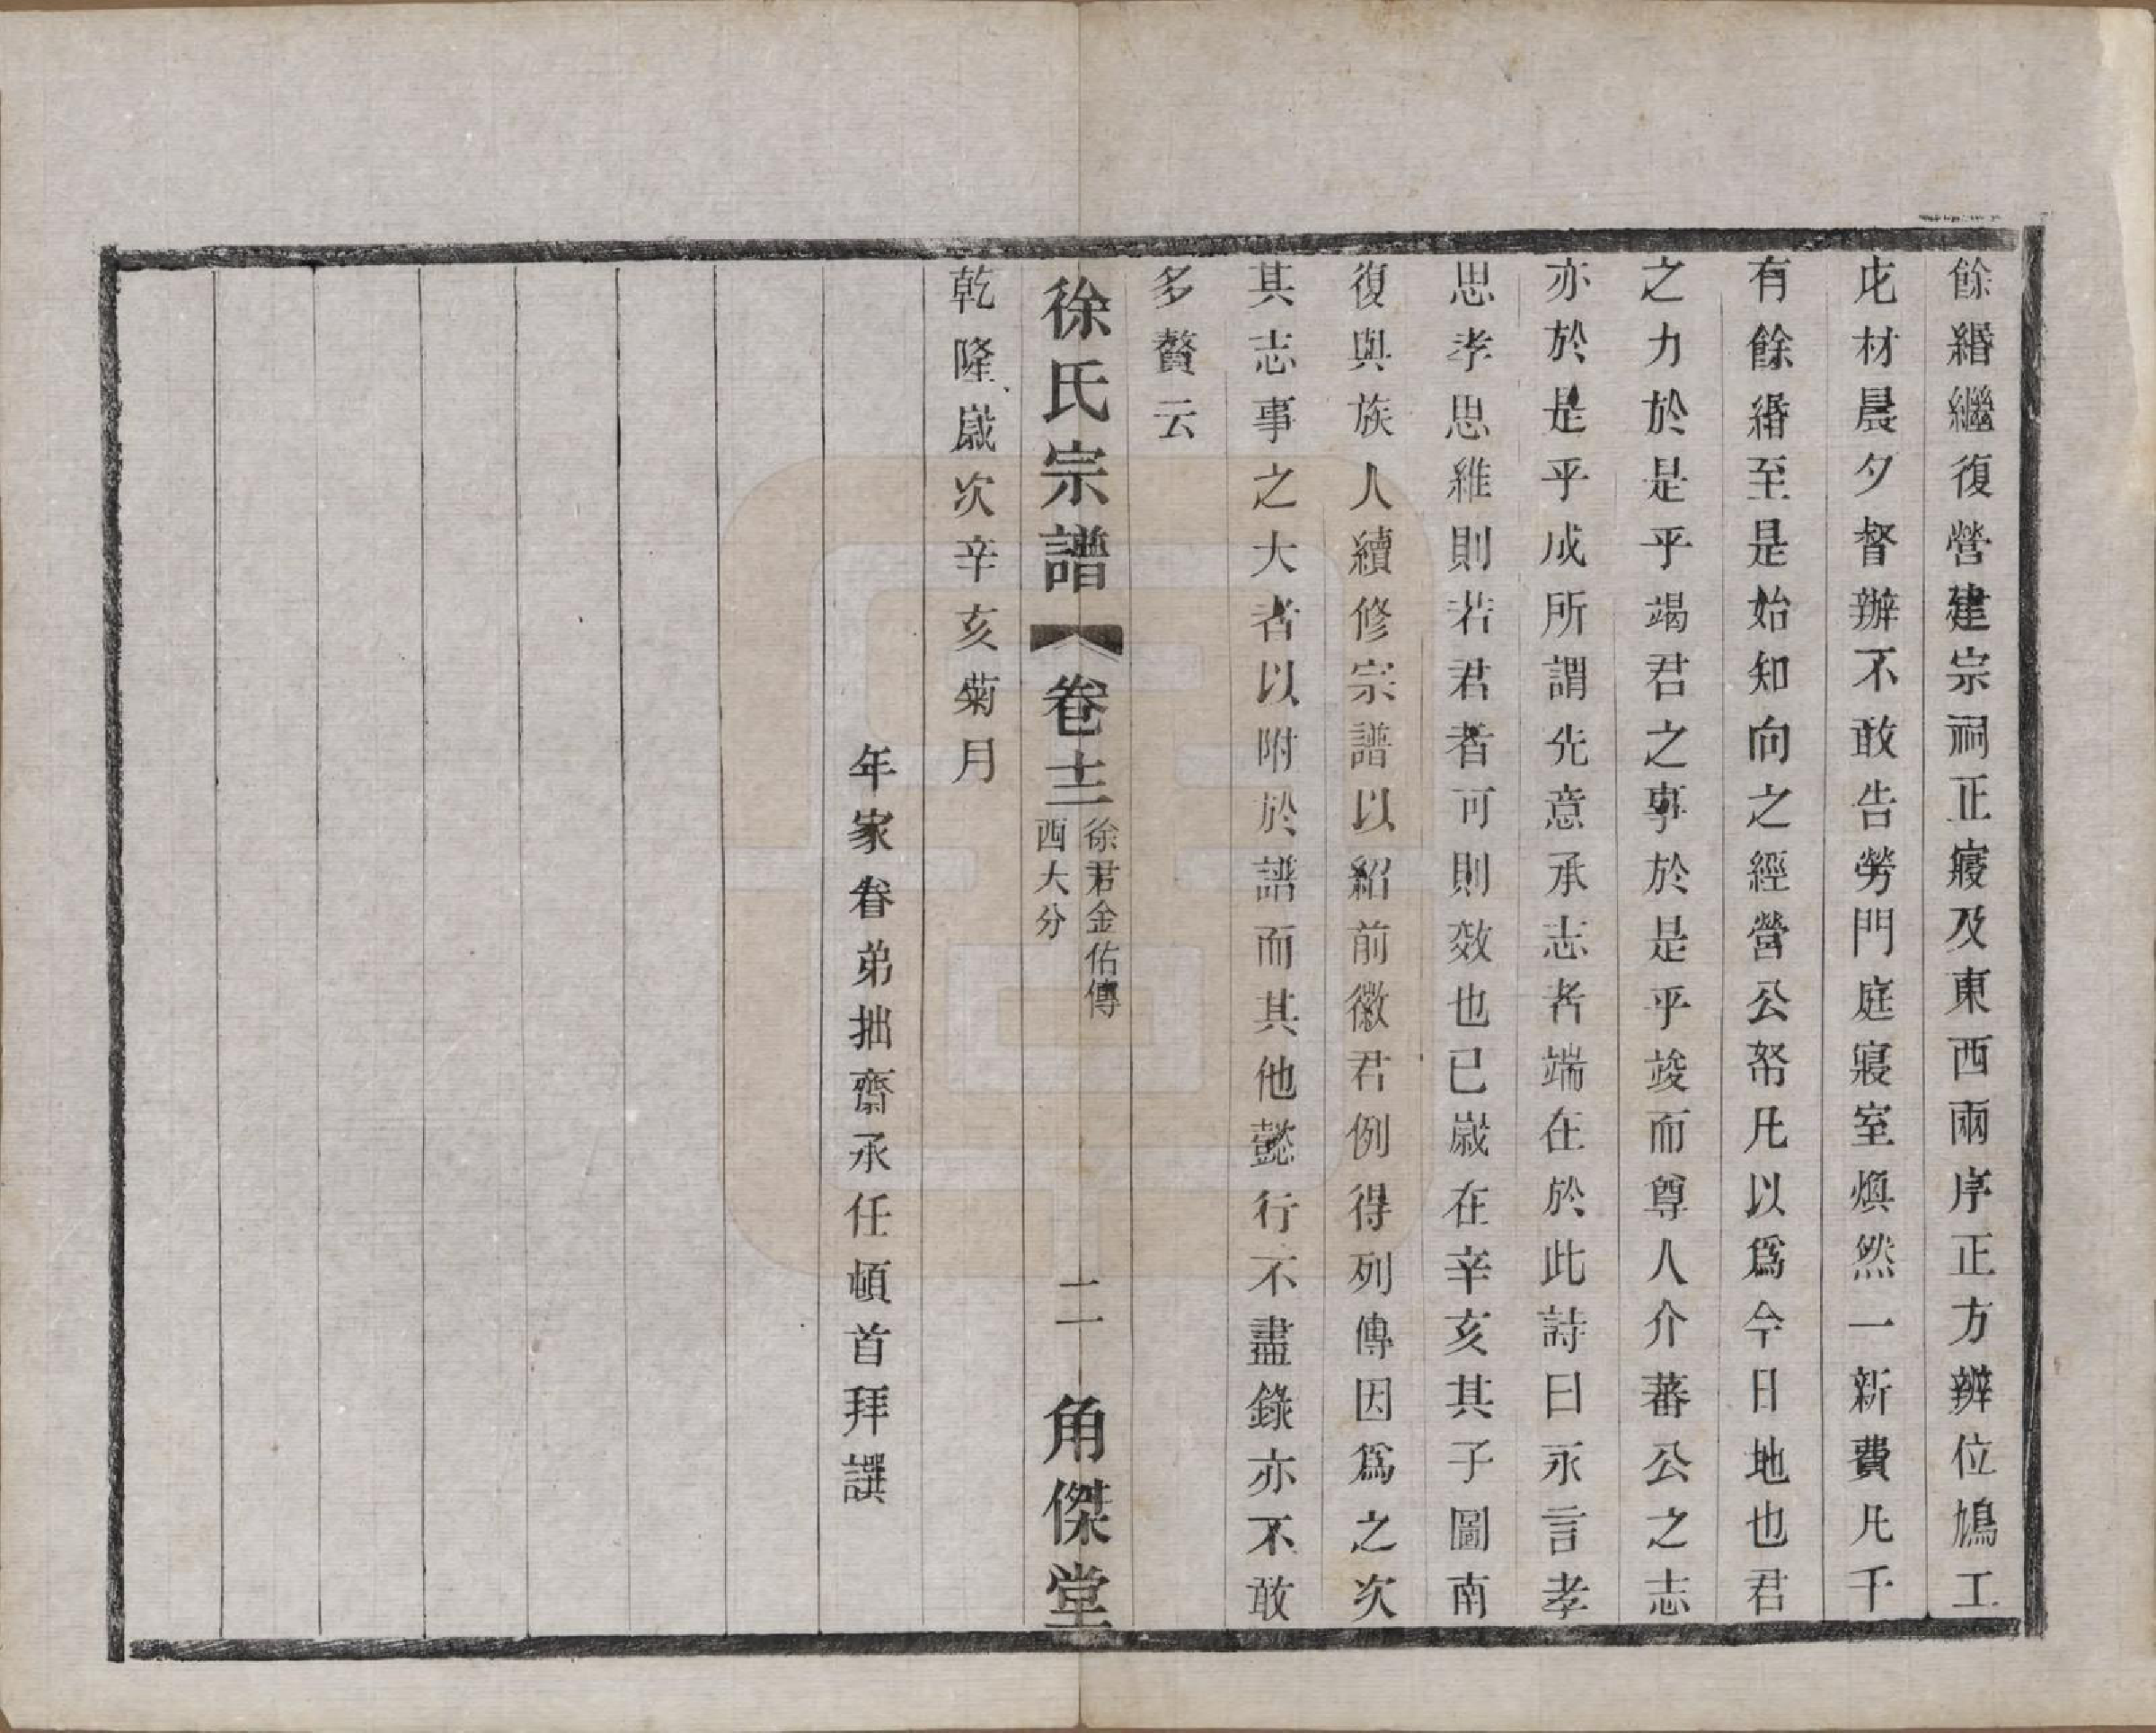 餘緡繼復營建宗祠正寢及東西兩序正方辨位鳩工
庀材晨夕督辦不敢告勞門庭寢室煥然一新費凡千
有餘緡至是始知向之經營公帑凡以爲今日地也君
之力於是乎竭君之事於是乎竣而尊人介蕃公之志
亦於是乎成所謂先意承志者端在於此詩曰永言孝
思孝思維則若君者可則效也已歲在辛亥其子圖南
復與族人續修宗譜以紹前徽君例得列傳因爲之次
其志事之大者以附於譜而其他懿行不盡錄亦不敢
多贅云
徐氏宗譜 卷十三 徐君金佑傳 西大分 二 角傑堂
乾隆歲次辛亥菊月
年家眷弟拙齋承任頓首拜譔